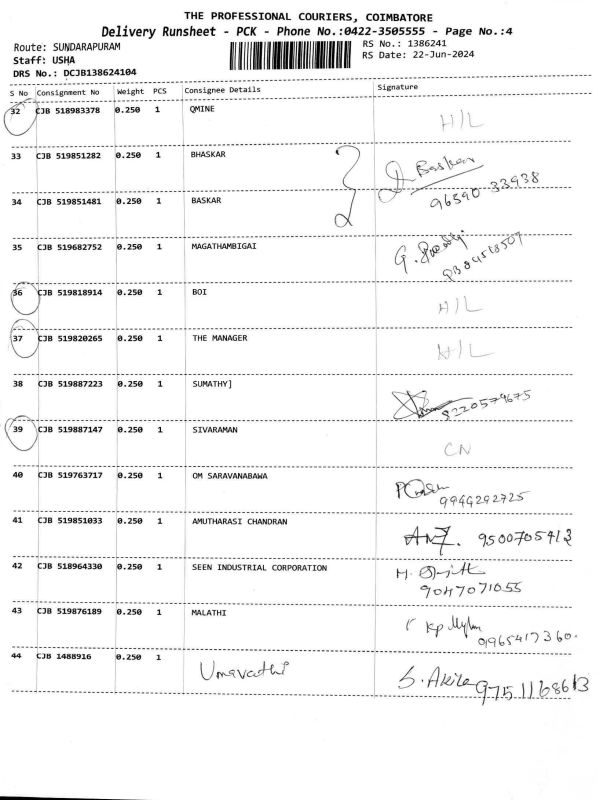 THE PROFESSIONAL COURIERS, COIMBATORE
Delivery Runsheet - PCK - Phone No.:0422-3505555 - Page No.:4
Route: SUNDARAPURAM
RS No.: 1386241
Staff: USHA
RS Date: 22-Jun-2024
DRS No.: DCJB138624104
S No Consignment No Weight PCS Consignee Details Signature
32 CJB 518983378 0.250 1 QMINE H/L
33 CJB 519851282 0.250 1 BHASKAR Baskar
96590 33938
34 CJB 519851481 0.250 1 BASKAR
35 CJB 519682752 0.250 1 MAGATHAMBIGAI G.
36 CJB 519818914 0.250 1 BOI H/L
37 CJB 519820265 0.250 1 THE MANAGER H/L
38 CJB 519887223 0.250 1 SUMATHY] 8220579675
39 CJB 519887147 0.250 1 SIVARAMAN CN
40 CJB 519763717 0.250 1 OM SARAVANABAWA
9944292725
41 CJB 519851033 0.250 1 AMUTHARASI CHANDRAN 9500705413
42 CJB 518964330 0.250 1 SEEN INDUSTRIAL CORPORATION
9047071055
43 CJB 519876189 0.250 1 MALATHI Kp
44 CJB 1488916 0.250 1 Umavathi S. Akila 9751168613